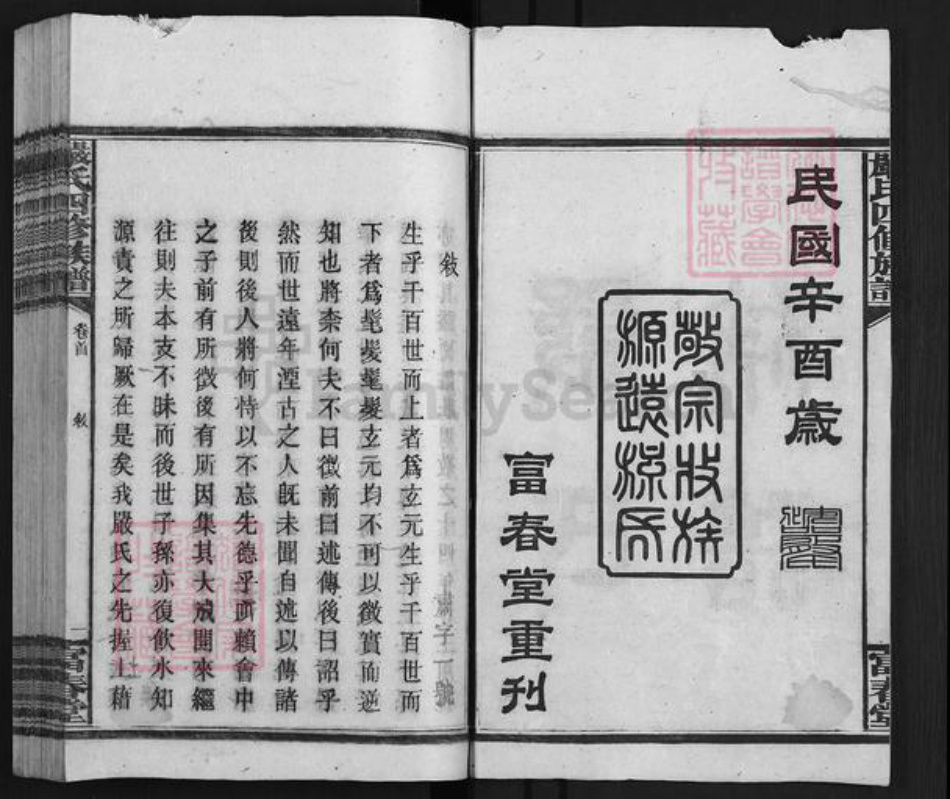 嚴氏四修族譜
富春堂
民國辛酉歲
敬宗收族
源遠流長
富春堂重刊
敘
生乎千百世而上者爲玄元生乎千百世而
下者爲髦髮髦髮玄元均不可以徵實而逆
知也將柰何夫不曰徵前曰述傳後曰詔乎
然而世遠年湮古之人旣未聞自述以傳諸
後則後人將何恃以不忘先德乎所賴會中
之子前有所徵後有所因集其大成開來繼
往則夫本支不昧而後世子孫亦復飲水知
源責之所歸厥在是矣我嚴氏之先握土藉
嚴氏四修族譜
卷首
敘
一
富春堂
FamilySearch